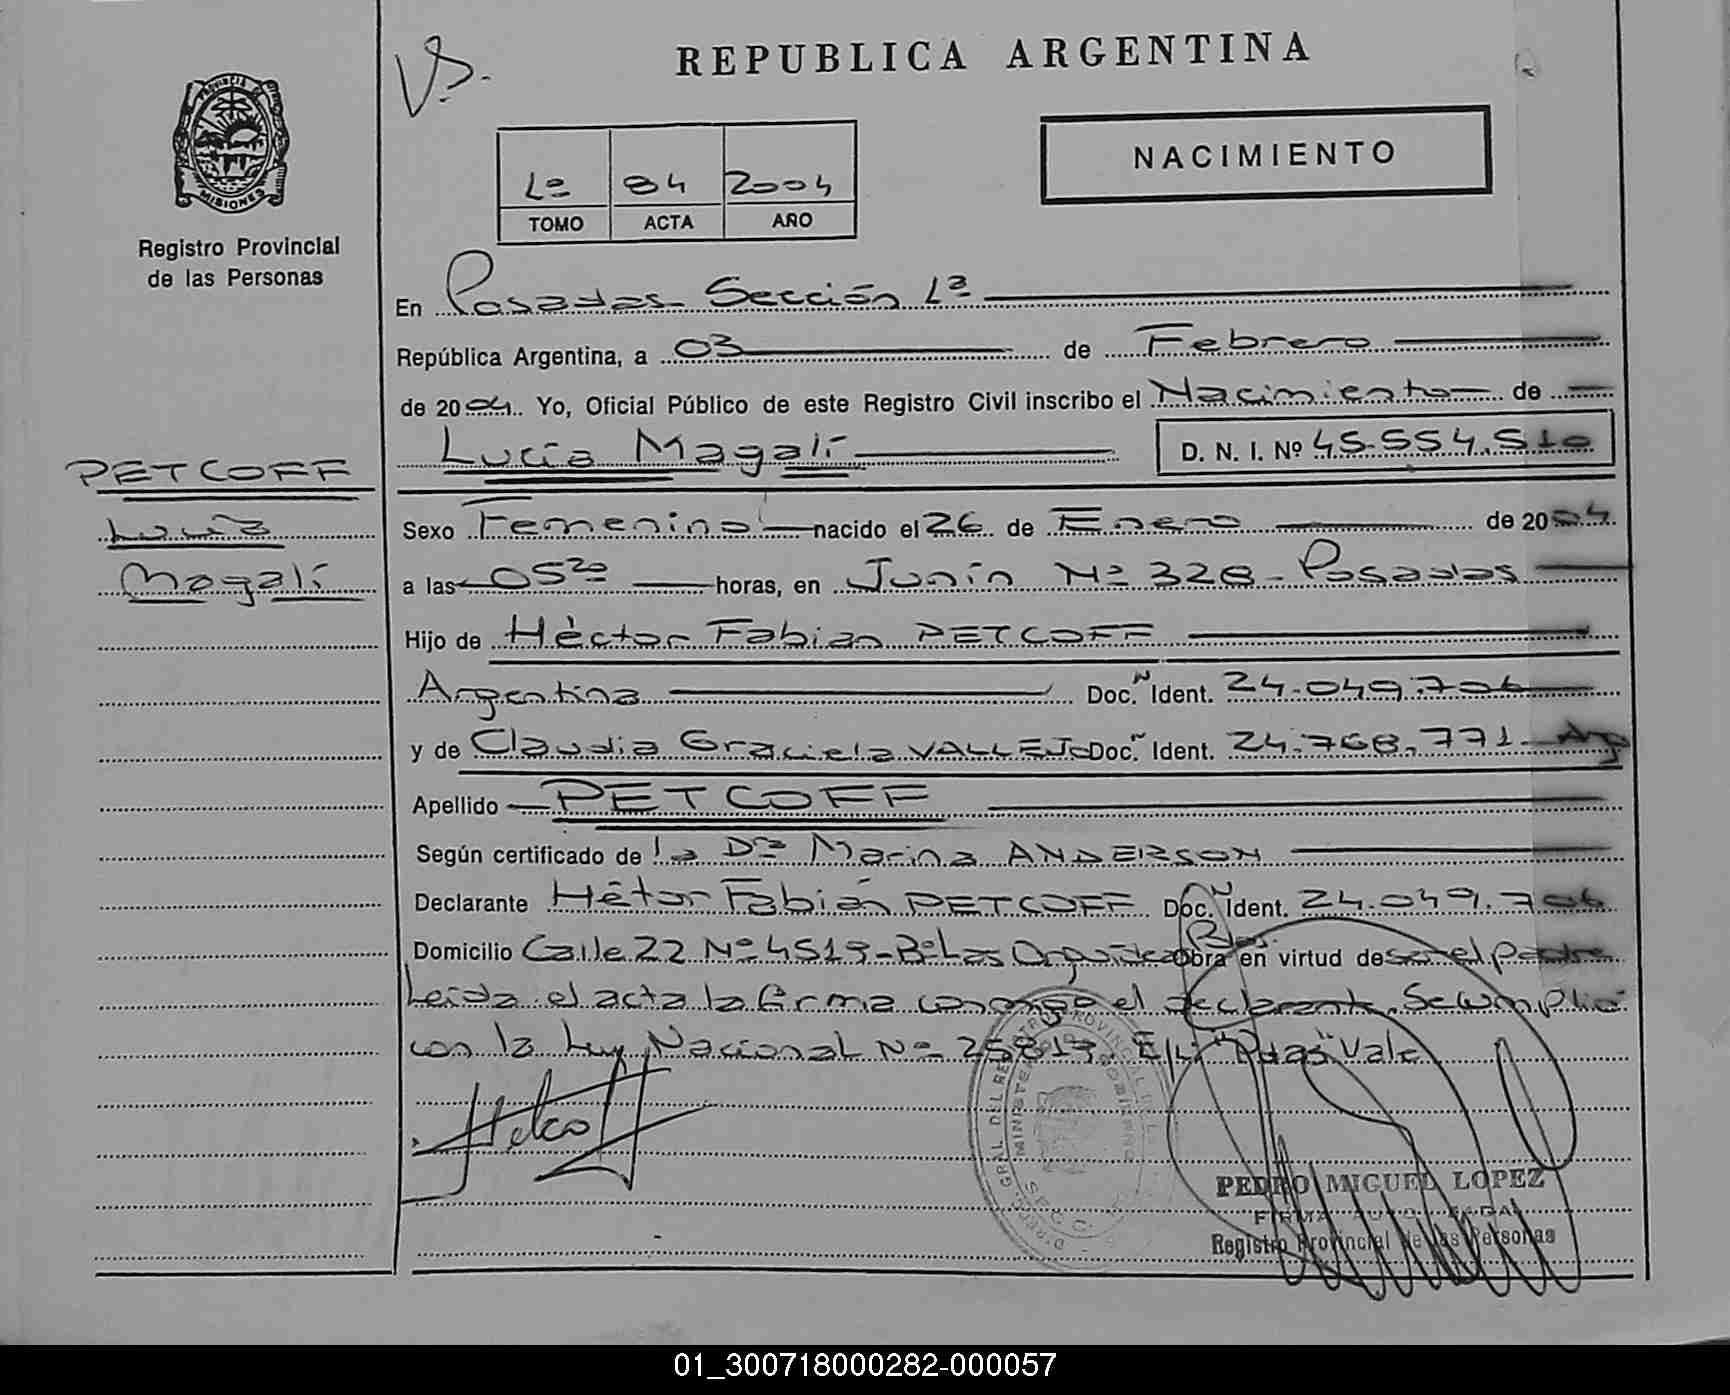 V.S.
REPUBLICA ARGENTINA
PROVINCIA DE
MISIONES
Registro Provincial
de las Personas
Lº 84 2004
TOMO ACTA AÑO
NACIMIENTO
En Posadas Sección 1ª
República Argentina, a 03 de Febrero
de 2004. Yo, Oficial Público de este Registro Civil inscribo el Nacimiento de
Lucía Magalí D. N. I. Nº 45.554.510
PETCOFF
Lucía
Magalí
Sexo Femenino nacido el 26 de Enero de 2004
a las 05²⁰ horas, en Junín Nº 328 - Posadas
Hijo de Héctor Fabian PETCOFF
Argentina Doc. Ident. 24.049.706
y de Claudia Graciela VALLEJO Doc. Ident. 24.768.771 - Arg
Apellido PETCOFF
Según certificado de la Dra Marina ANDERSON
Declarante Héctor Fabián PETCOFF Doc. Ident. 24.049.706
Domicilio Calle 22 Nº 4519 - Bº Las Orquídeas Obra en virtud de ser el padre
Leída el acta la firma conmigo el declarante. Se cumplió
con la Ley Nacional Nº 25819. E/L: Vale
Petcoff
PEDRO MIGUEL LOPEZ
FIRMA
Registro Provincial de las Personas
01_300718000282-000057